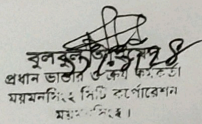 প্রধান ভান্ডার ও ক্রয় কর্মকর্তা
ময়মনসিংহ সিটি কর্পোরেশন
ময়মনসিংহ।